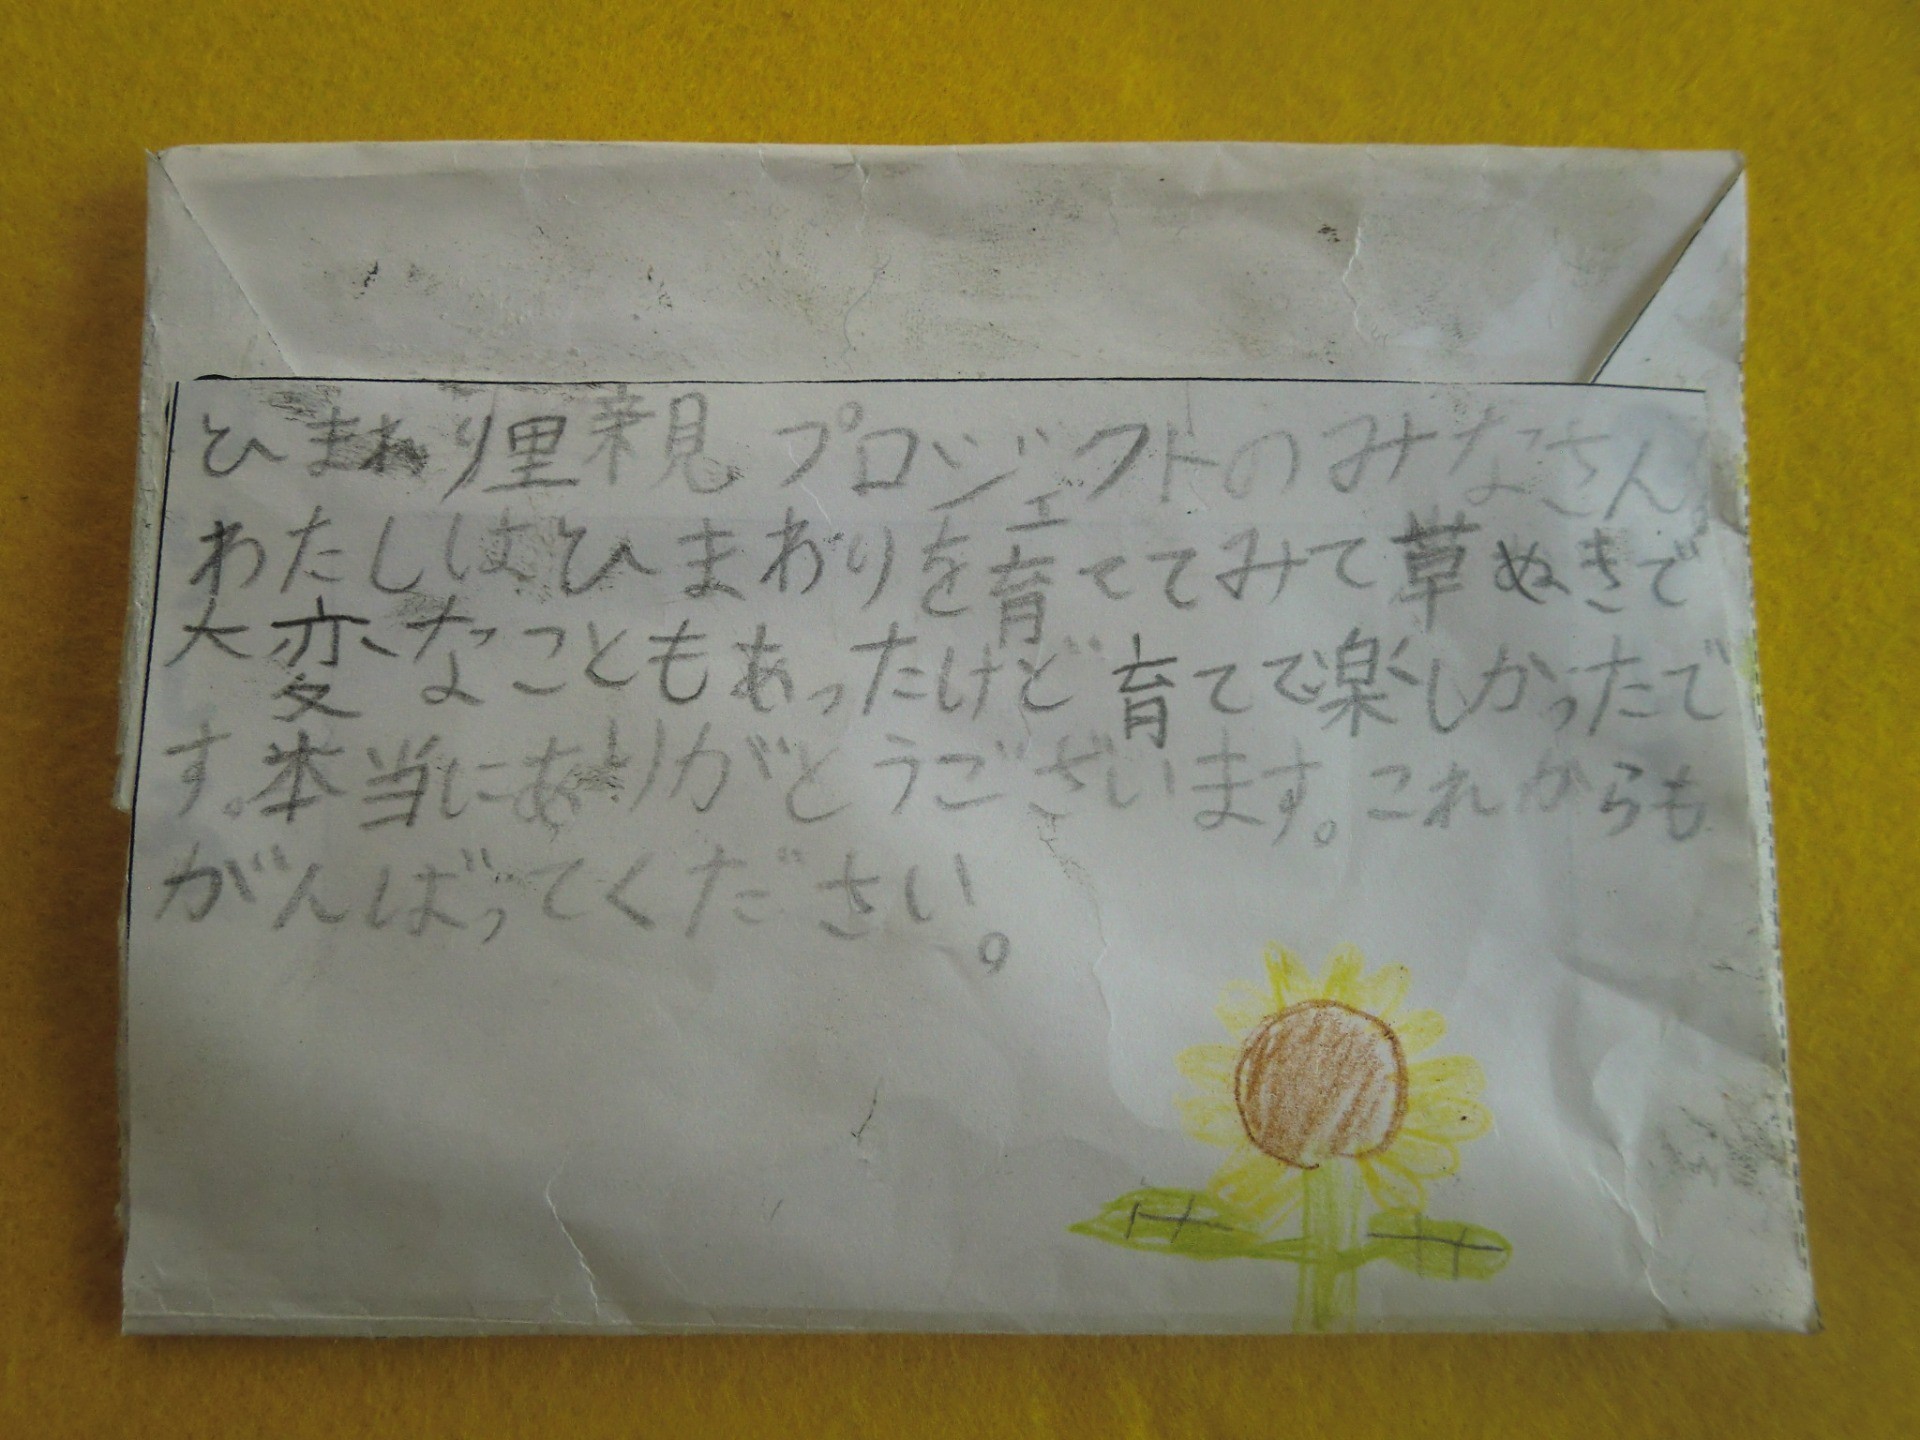 ひまわり里親プロジェクトのみなさん
わたしはひまわりを育ててみて草ぬきで
大変なこともあったけど育てて楽しかったで
す。本当にありがとうございます。これからも
がんばってください。